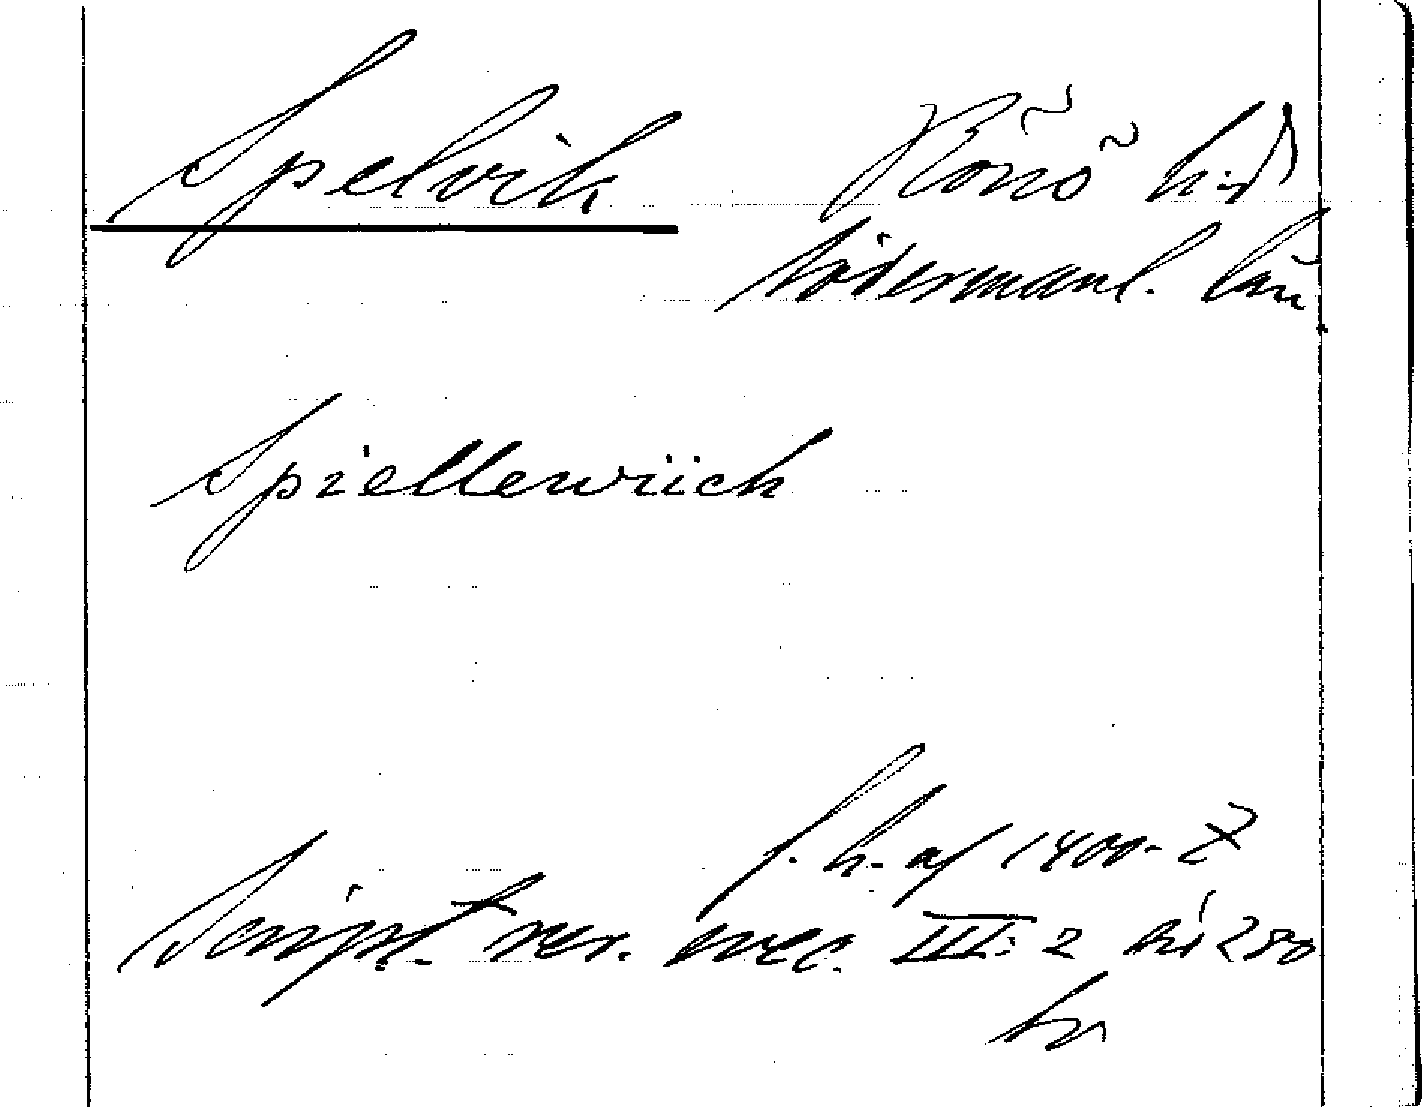 Spelvik Rönö hd
Södermanl. län
Spiellewiick
f. h. af 1400-t
Script. rer. svec. III: 2 sid 280